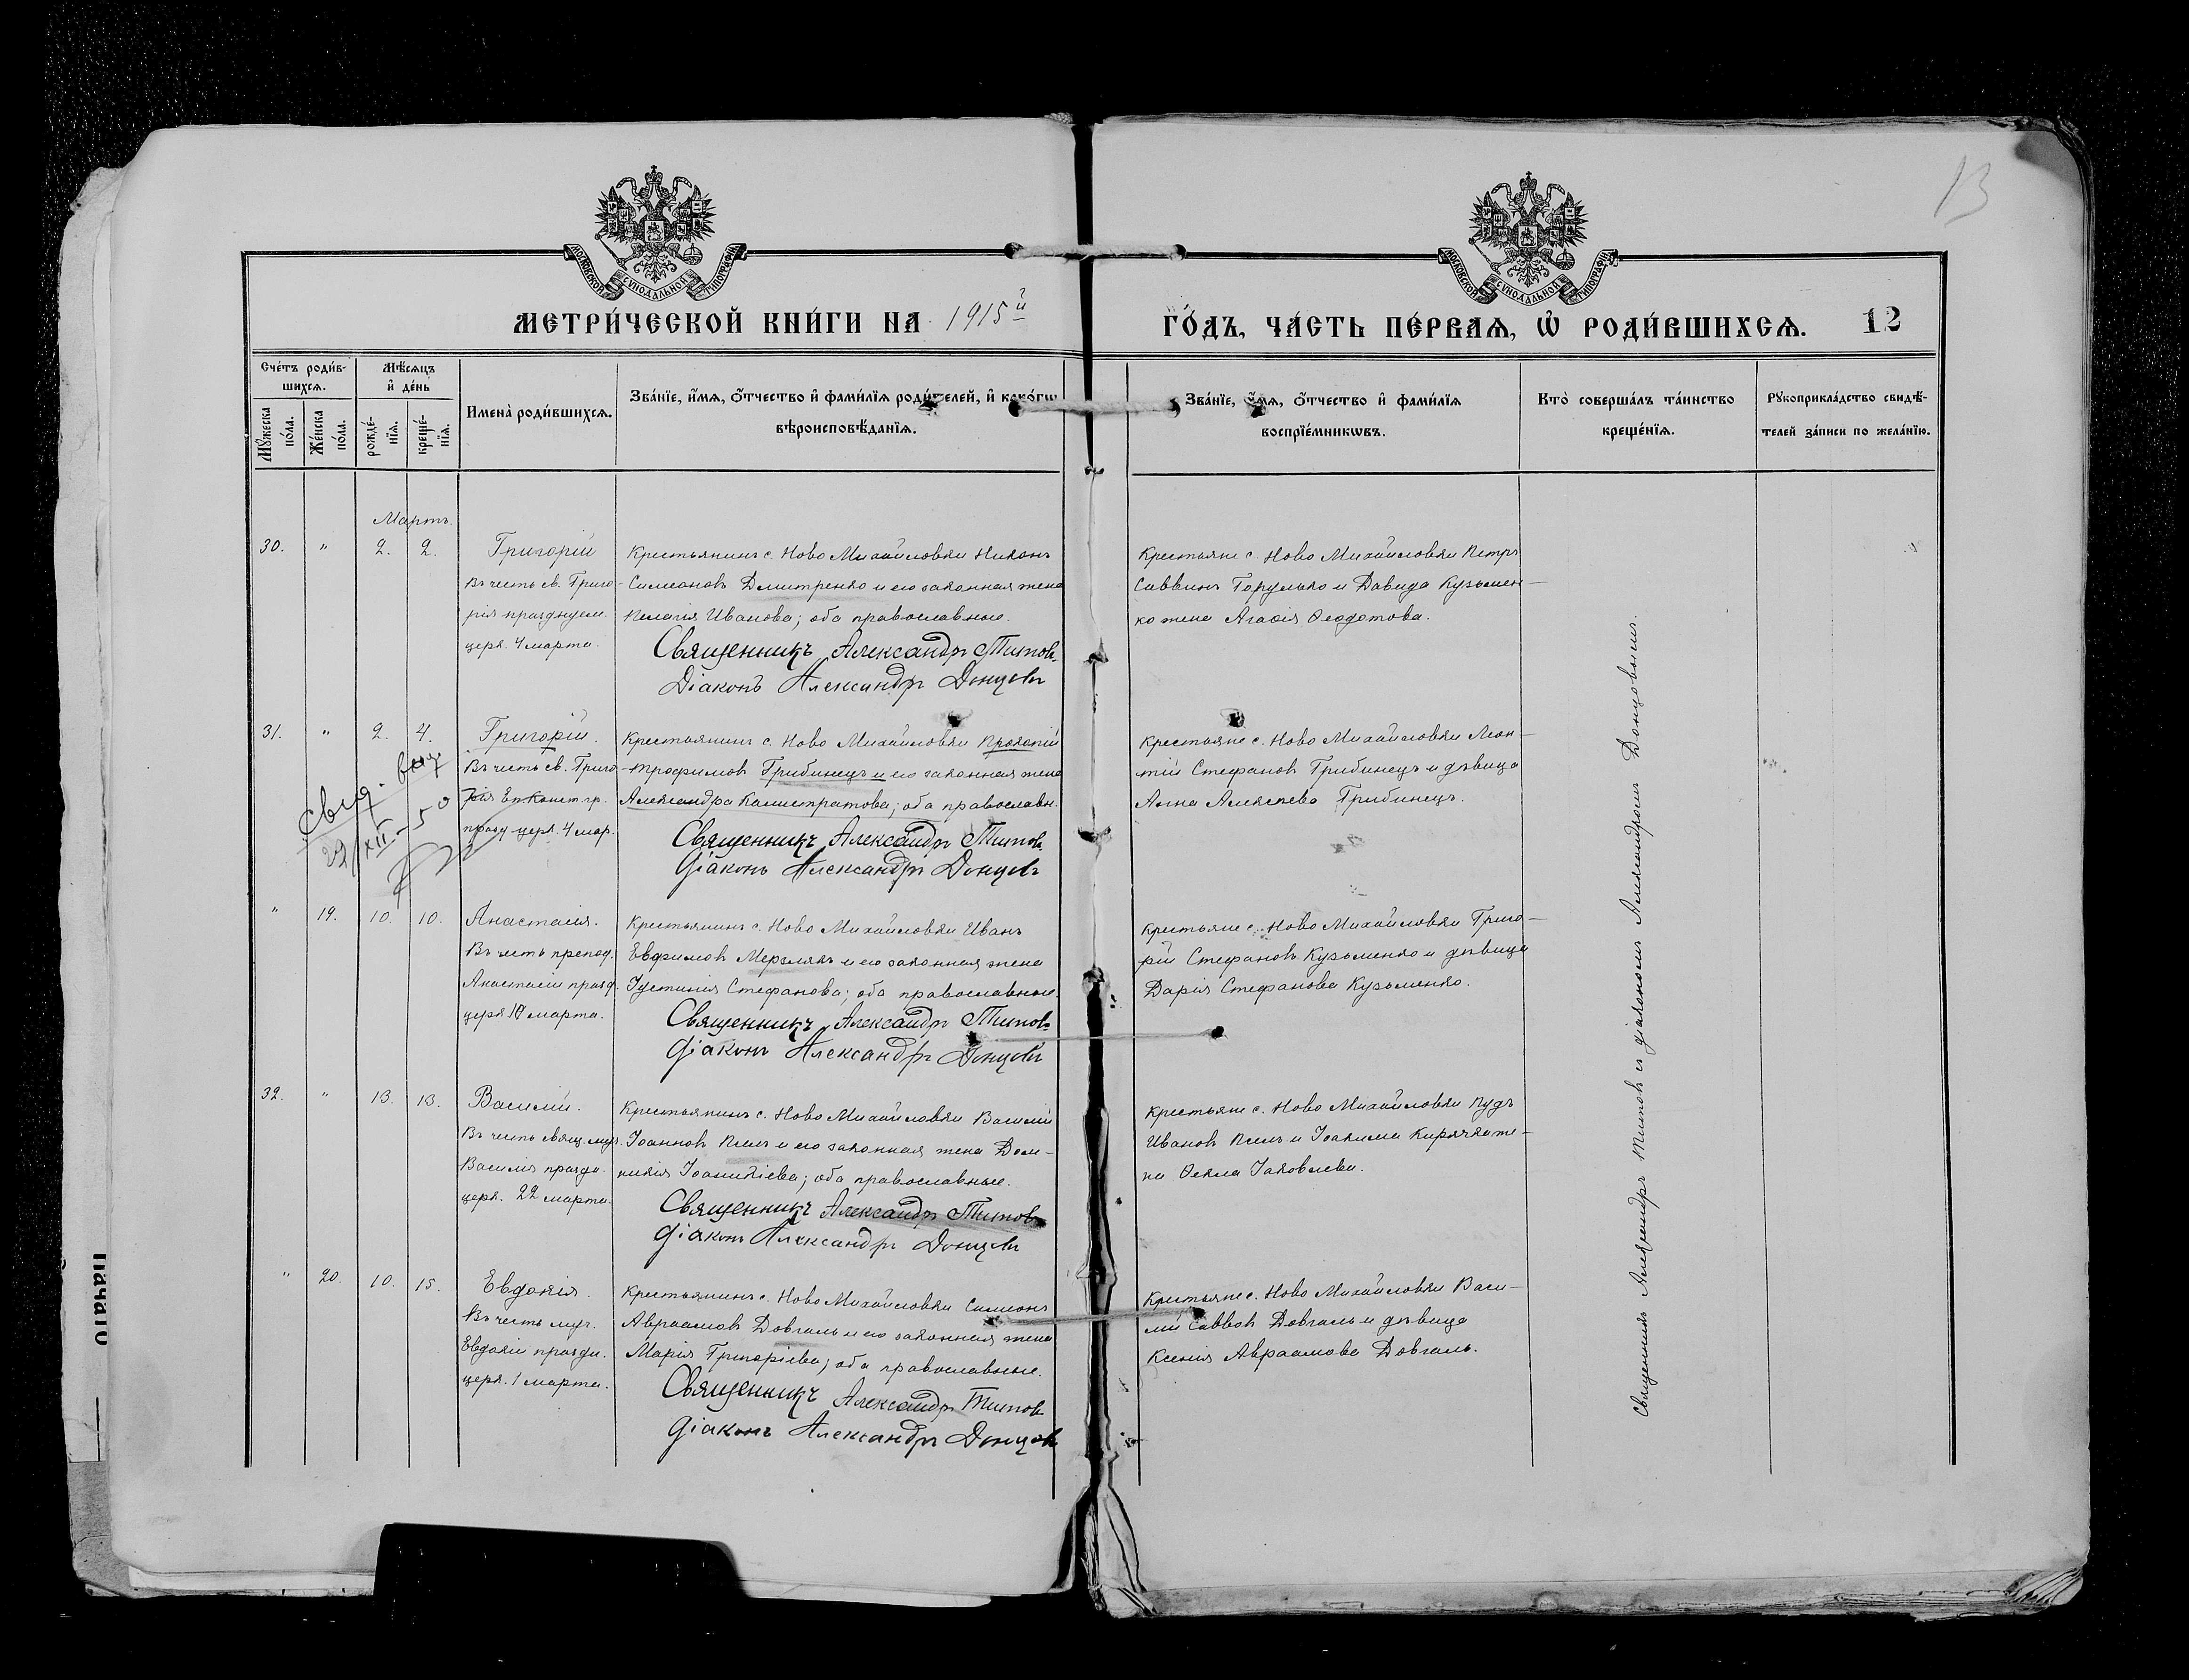 13
МОСКОВСКОЙ СѴНОДАЛЬНОЙ ТИПОГРАФІИ
МОСКОВСКОЙ СѴНОДАЛЬНОЙ ТИПОГРАФІИ
МЕТРИ́ЧЕСКОЙ КНИ́ГИ НА 1915й
ГО́ДЪ, ЧА́СТЬ ПЕ́РВАѦ, Ѡ҆ РОДИ́ВШИХСѦ. 12
Сче́тъ роди́в-
шихсѧ.
Мꙋ́жеска
по́ла.
Же́нска
по́ла.
Мѣ́сѧцъ
и҆ де́нь
рожде́-
нїѧ.
креще́-
нїѧ.
Имена̀ роди́вшихсѧ.
Зва́нїе, и҆́мѧ, ѻ҆́тчество и҆ фами́лїѧ роди́телей, и҆ како́гѡ
вѣроисповѣ́данїѧ.
Зва́нїе, и҆́мѧ, ѻ҆́тчество и҆ фами́лїѧ
воспрїе́мникѡвъ.
Кто̀ соверша́лъ та́инство
креще́нїѧ.
Рꙋкоприкла́дство свидѣ́-
телей за́писи по жела́нїю.
Мартъ.
30. " 2. 2.
Григорій
Въ честь св. Григо-
рія празднуем.
церк. 4 марта.
Крестьянинъ с. Ново Михайловки Никонъ
Симеоновъ Дмитренко и его законная жена
Пелагія Иванова; оба православные.
Священникъ Александръ Титовъ
Діаконъ Александръ Донцовъ
Крестьяне с. Ново Михайловки Петръ
Саввинъ Горулько и Давида Кузьмен-
ко жена Агаѳія Ѳеодотова.
31. " 2. 4.
Григорій.
Въ честь св. Григо-
рія Еп Конст гр.
празд церк. 4 мар.
Крестьянинъ с. Ново Михайловки Прокопій
Трофимовъ Грибинецъ и его законная жена
Александра Калистратова; оба православн.
Священникъ Александръ Титовъ
Діаконъ Александръ Донцовъ
Крестьяне с. Ново Михайловки Леон-
тій Стефановъ Грибинецъ и дѣвица
Анна Алексѣева Грибинецъ.
свид.
29/XII-50
" 19. 10. 10.
Анастасія.
Въ честь препод.
Анастасіи празд.
церк 10 марта.
Крестьянинъ с. Ново Михайловки Иванъ
Евфимовъ Мерзлякъ и его законная жена
Іустинія Стефанова; оба православные.
Священникъ Александръ Титовъ
Діаконъ Александръ Донцовъ
Крестьяне с. Ново Михайловки Григо-
рій Стефановъ Кузьменко и дѣвица
Дарія Стефанова Кузьменко.
32. " 13. 13.
Василій.
Въ честь свящ. муч.
Василія праздн.
церк. 22 марта.
Крестьянинъ с. Ново Михайловки Василій
Іоанновъ Пилъ и его законная жена Дом-
никія Іоаникіева; оба православные.
Священникъ Александръ Титовъ
Діаконъ Александръ Донцовъ
Крестьяне с. Ново Михайловки Пудъ
Ивановъ Пилъ и Іоакима Кирячка же-
на Ѳекла Іаковлева.
" 20. 10. 15.
Евдокія.
Въ честь муч.
Евдокіи праздн.
церк. 1 марта.
Крестьянинъ с. Ново Михайловки Симеонъ
Авраамовъ Довгаль и его законная жена
Марія Григоріева; оба православные.
Священникъ Александръ Титовъ
Діаконъ Александръ Донцовъ
Крестьяне с. Ново Михайловки Васи-
лій Саввовъ Довгаль и дѣвица
Ксенія Авраамова Довгаль.
Священникъ Александръ Титовъ съ діакономъ Александромъ Донцовымъ.